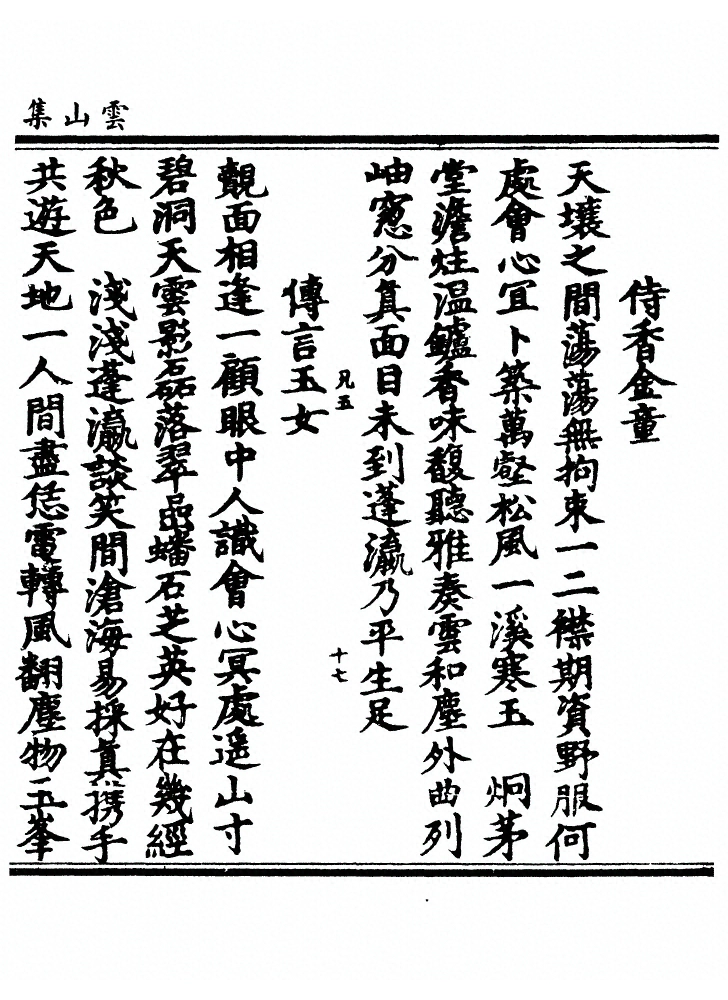 雲山集
侍香金童
天壤之間蕩蕩無拘束一二襟期資野服何
處會心冝卜築萬壑松風一溪寒玉　炯茅
堂澹炷温鑪香味馥聽雅奏雲和塵外曲列
岫窓分真面目未到蓬瀛乃平生足
凡五
十七
傳言玉女
覿面相逢一顧眼中人識會心冥處遥山寸
碧洞天雲影磊落翠嵒蟠石芝英好在幾經
秋色　淺淺蓬瀛談笑間滄海易採真携手
共遊天地一人間盡恁電轉風翻塵物玉峯